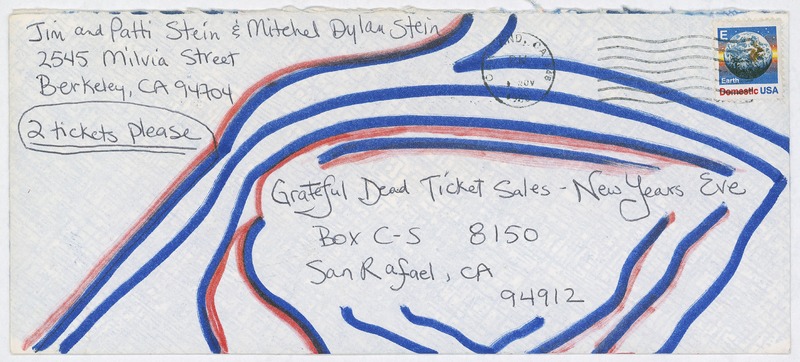 Jim and Patti Stein & Mitchel Dylan Stein
2545 Milvia Street
Berkeley, CA 94704
2 tickets please
E
Earth
Domestic USA
Grateful Dead Ticket Sales - New Years Eve
Box C-S 8150
San Rafael, CA
94912